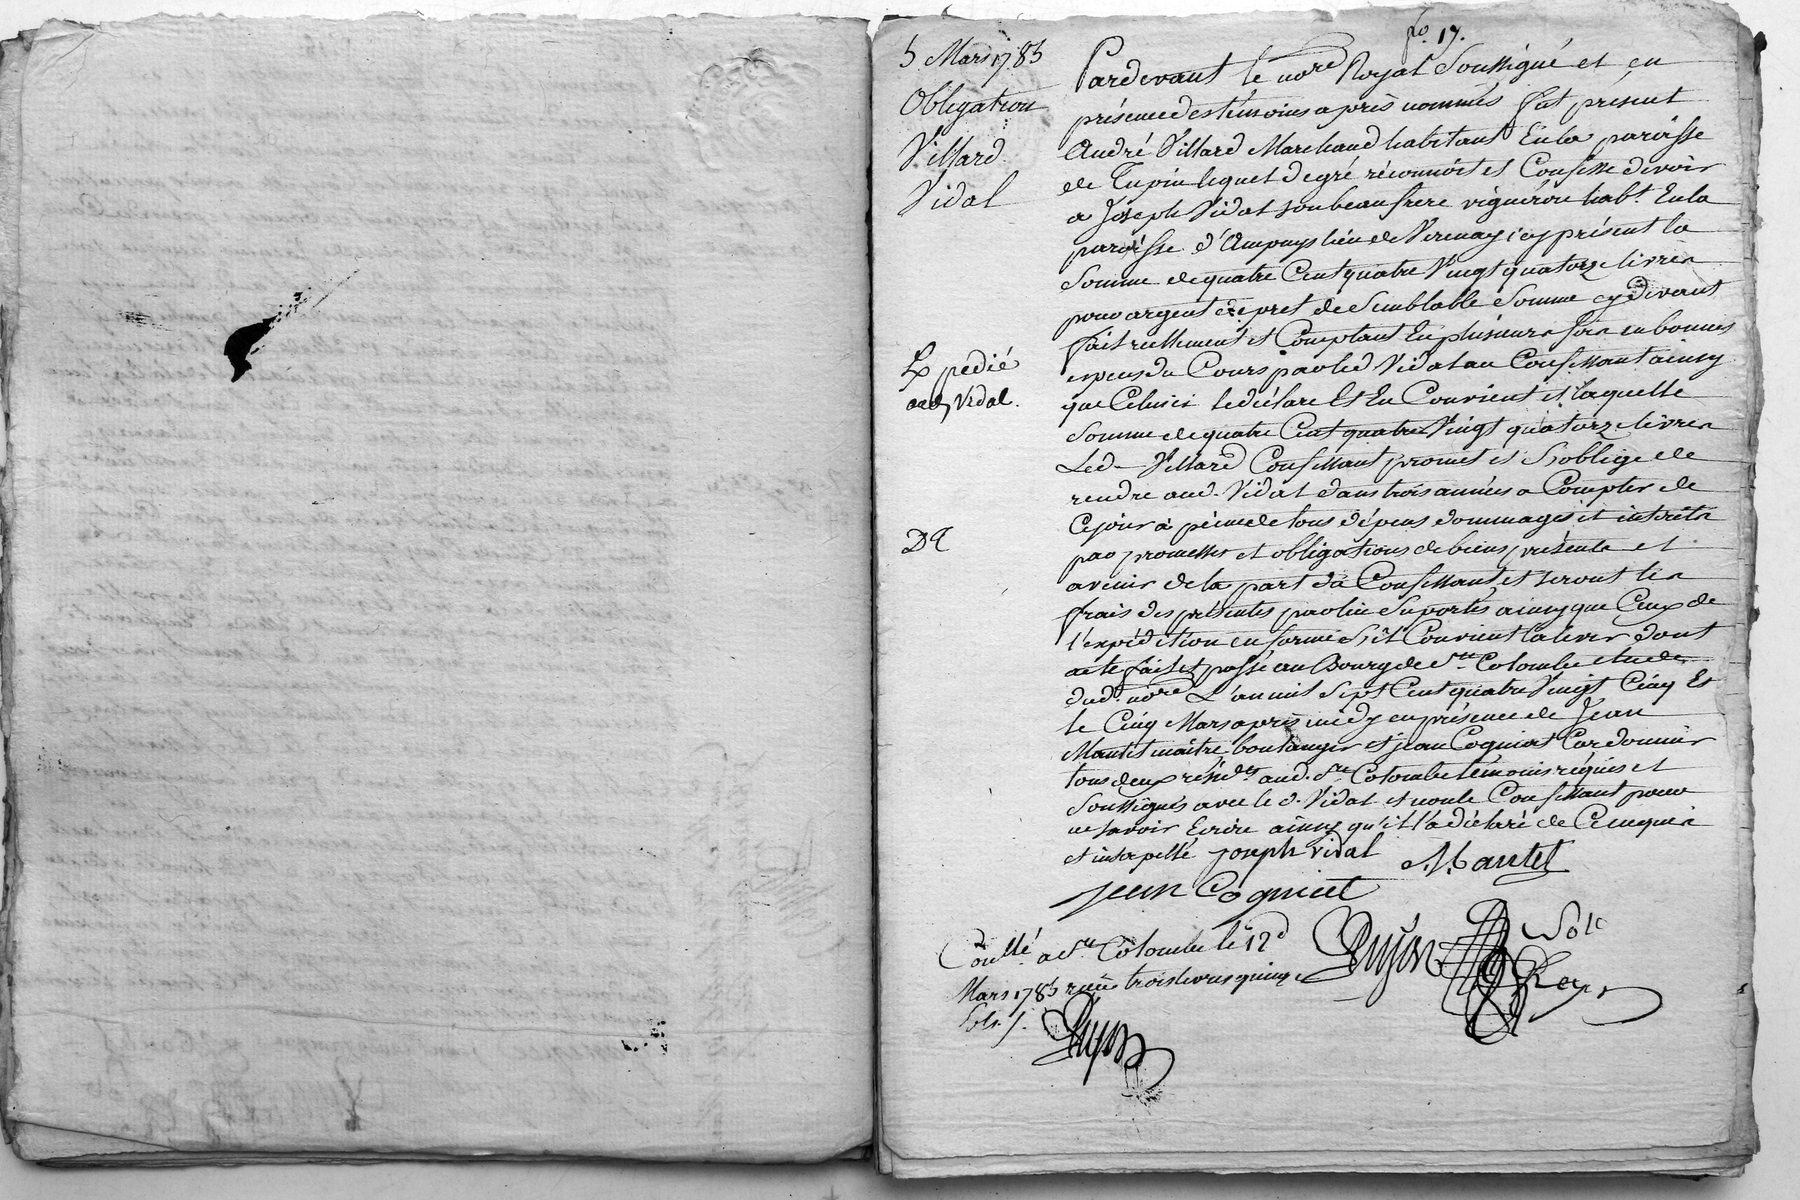 fo. 17.
5 Mars 1785
Obligation
Villard
Vidal
Expedié
aud. Vidal.
DQ
Pardevant le nore Royal Soussigné et en
présence des témoins après nommés fut present
André Villard Marchand habitant En la paroisse
de Tupin lequel de gré réconnoit et Confesse devoir
a Joseph Vidal son beau frere vigneron habt. En la
paroisse d'Ampuys lieu de Verenay icy présent la
Somme de quatre Cent quatre Vingt quatorze livres
pour argent de pret de Semblable Somme cy devant
fait réellement et Comptant En plusieurs fois en bonnes
especes du Cours par led. Vidal au Confessant ainsy
que Celuici le déclare Et En Convient et laquelle
Somme de quatre Cent quatre Vingt quatorze livres
Led. Villard Confessant promet et S'oblige de
rendre aud. Vidal dans trois années a Compter de
Cejour à peine de tous dépens dommages et intérêts
par promesses et obligations de biens présents et
avenir de la part du Confessant et seront les
frais des présentes par lui Suportés ainsy que Ceux de
l'expédition en forme S'il Convient la lever dont
acte fait et passé au Bourg de Ste Colombe etude
dud. nore L'an mil Sept Cent quatre Vingt Cinq Et
le Cinq Mars après midy en présence de Jean
Mantet maître boulanger et Jean Cogniet Cordonnier
tous deux résidts aud. Ste Colombe témoins réquis et
Soussignés avec le d. Vidal et non le Confessant pour
ne savoir Ecrire ainsy qu'il l'a déclaré de Ce enquis
et interpellé Joseph Vidal M. antet
Jean Cogniet
Dujon Nore
Royal
Conllé a Ste Colombe le 12e
Mars 1785 reçu trois livres quinze
Sols ./.
Dujon